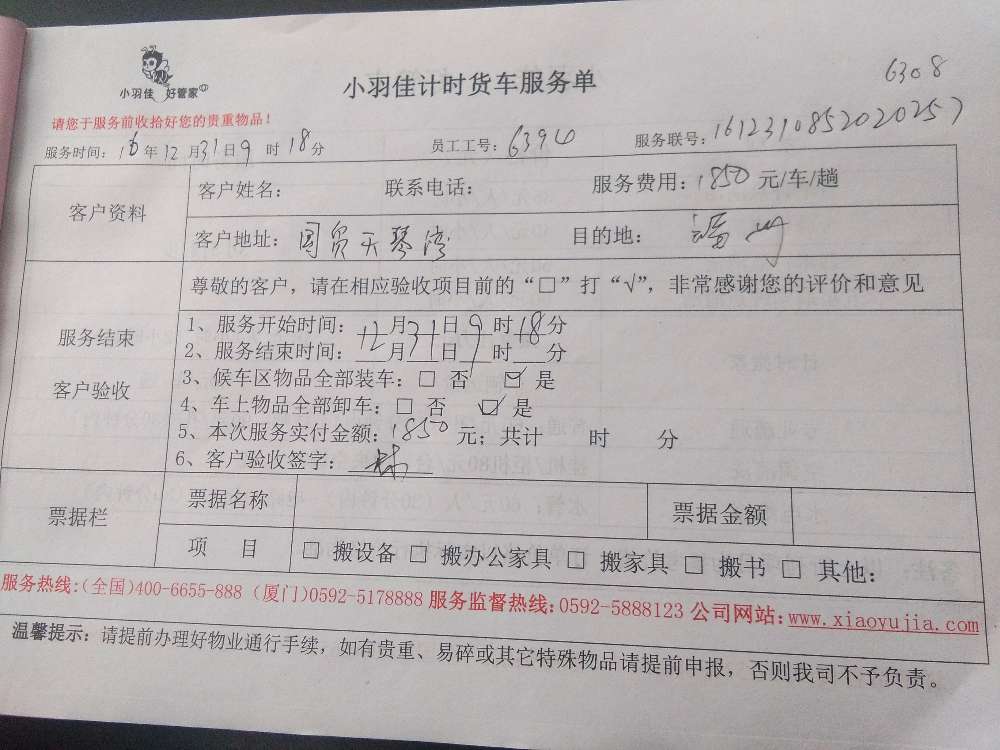 小羽佳 好管家
小羽佳计时货车服务单
6308
请您于服务前收拾好您的贵重物品！
服务时间：16年12月31日9时18分 员工工号：6394 服务联号：161231085202 0257
客户资料
客户姓名： 联系电话： 服务费用：1850元/车/趟
客户地址：国贸天琴湾 目的地：漳州
服务结束
客户验收
尊敬的客户，请在相应验收项目前的“□”打“√”，非常感谢您的评价和意见
1、服务开始时间：12月31日9时18分
2、服务结束时间：月 日 时 分
3、候车区物品全部装车：□ 否 ☑ 是
4、车上物品全部卸车：□ 否 ☑ 是
5、本次服务实付金额：1850元；共计 时 分
6、客户验收签字：
票据栏
票据名称 票据金额
项 目 □ 搬设备 □ 搬办公家具 □ 搬家具 □ 搬书 □ 其他：
服务热线：(全国)400-6655-888 (厦门)0592-5178888 服务监督热线：0592-5888123 公司网站：www.xiaoyujia.com
温馨提示：请提前办理好物业通行手续，如有贵重、易碎或其它特殊物品请提前申报，否则我司不予负责。